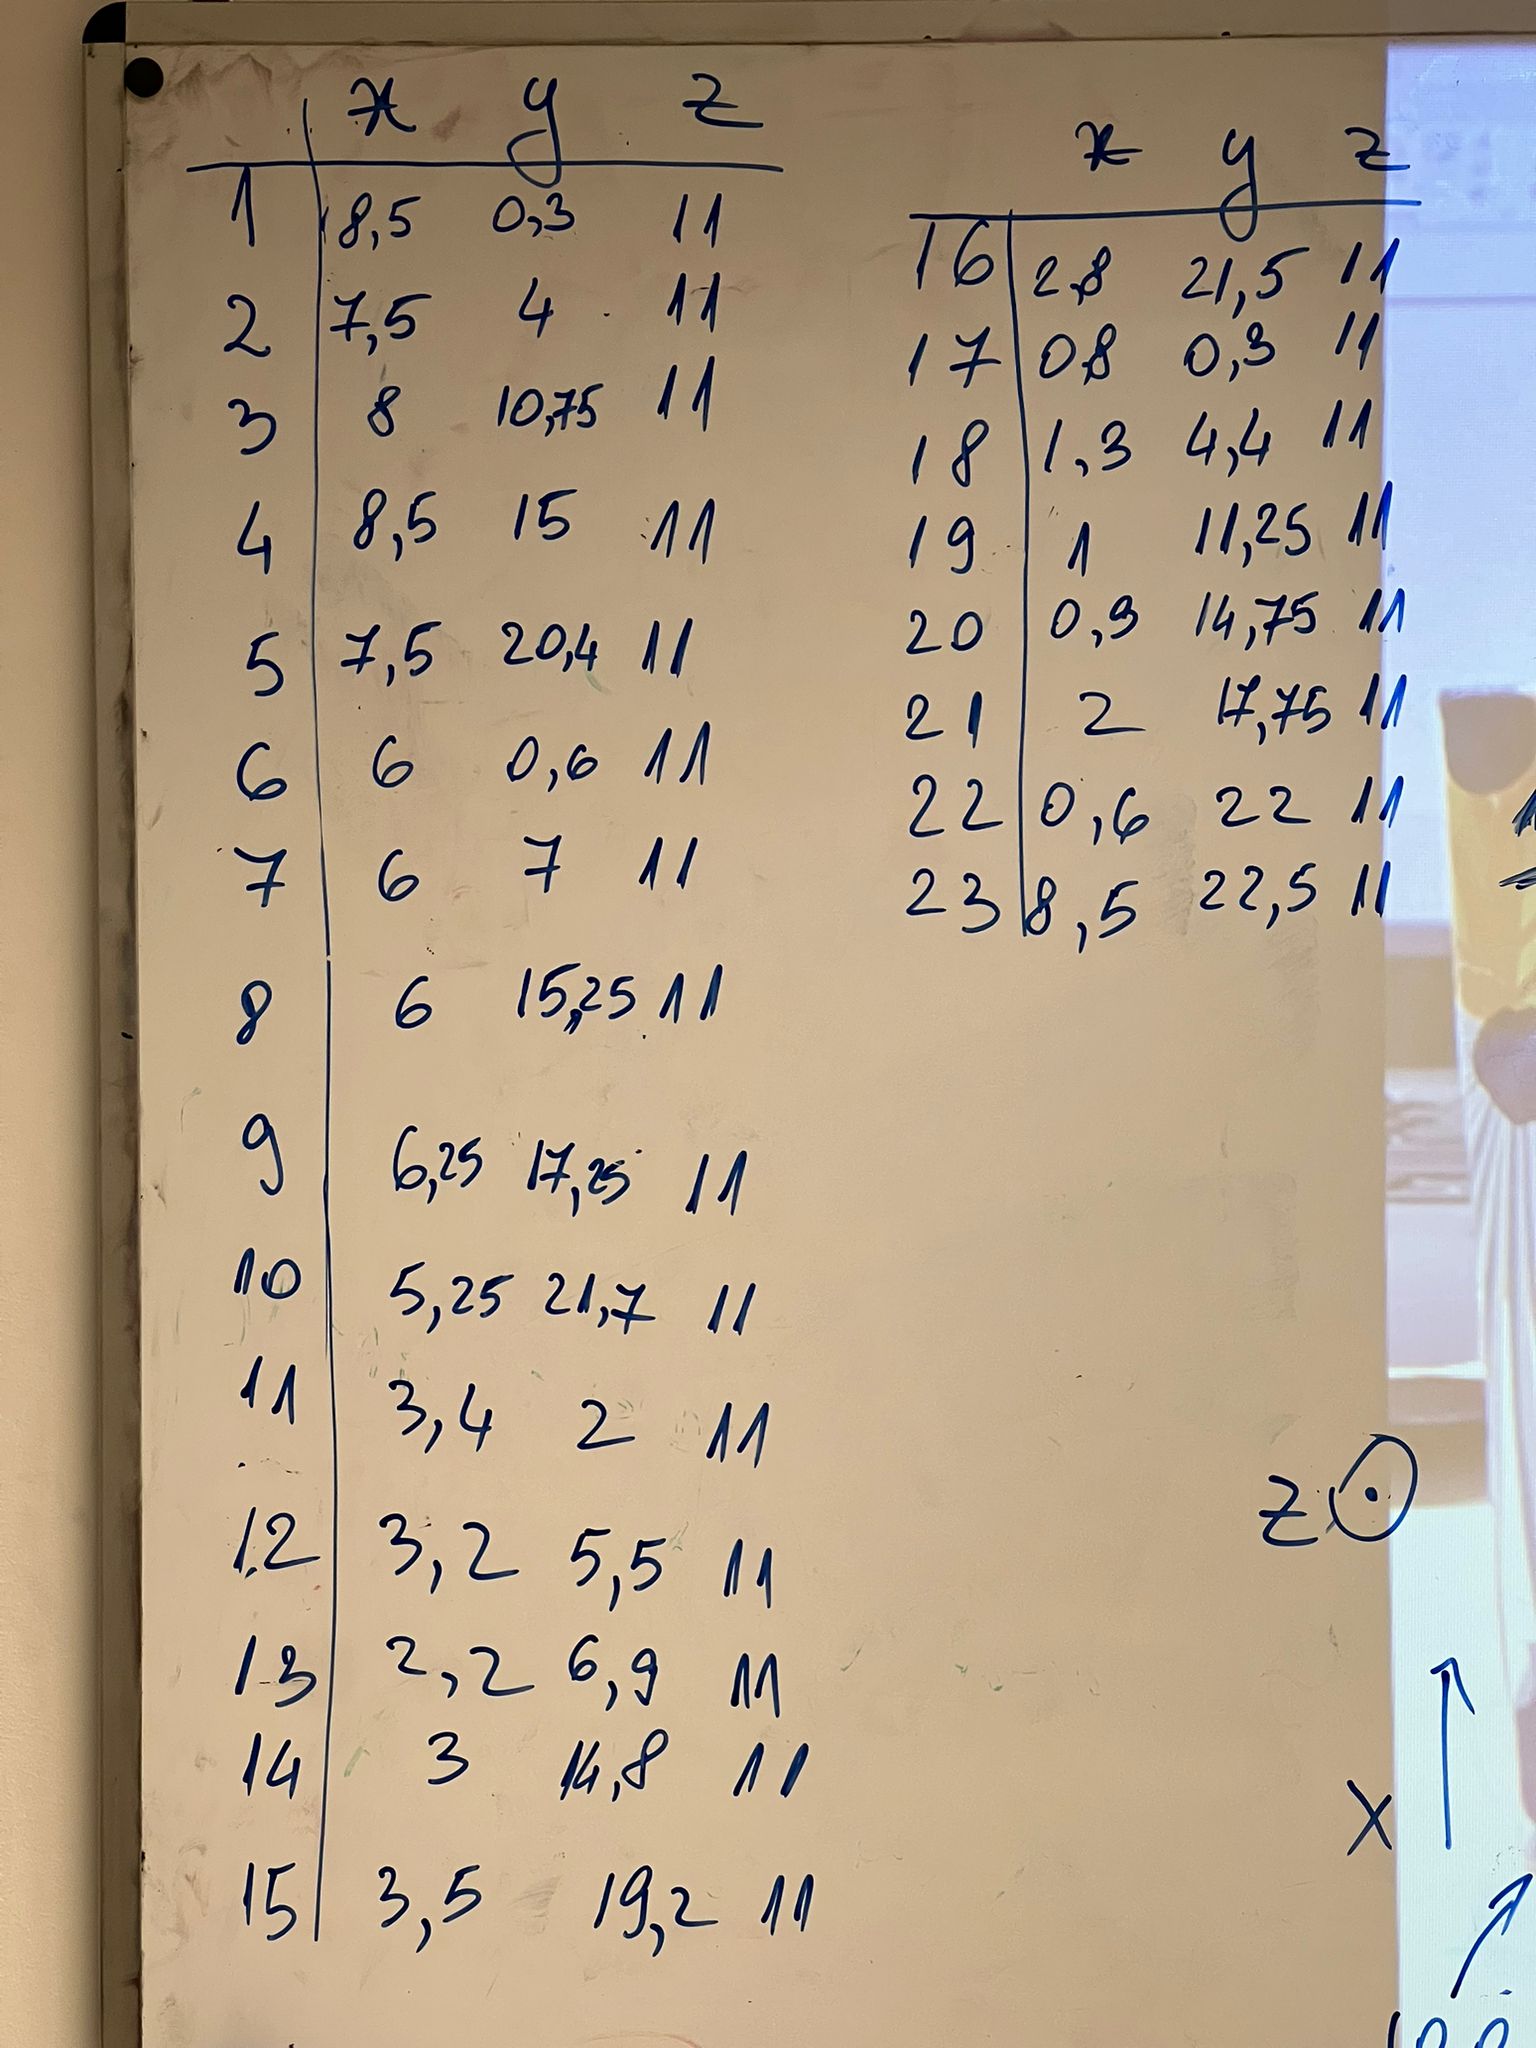 x y z
1 8,5 0,3 11
2 7,5 4 11
3 8 10,75 11
4 8,5 15 11
5 7,5 20,4 11
6 6 0,6 11
7 6 7 11
8 6 15,25 11
9 6,25 17,25 11
10 5,25 21,7 11
11 3,4 2 11
12 3,2 5,5 11
13 2,2 6,9 11
14 3 14,8 11
15 3,5 19,2 11
x y z
16 2,8 21,5 11
17 0,8 0,3 11
18 1,3 4,4 11
19 1 11,25 11
20 0,9 14,75 11
21 2 17,75 11
22 0,6 22 11
23 8,5 22,5 11
z
x